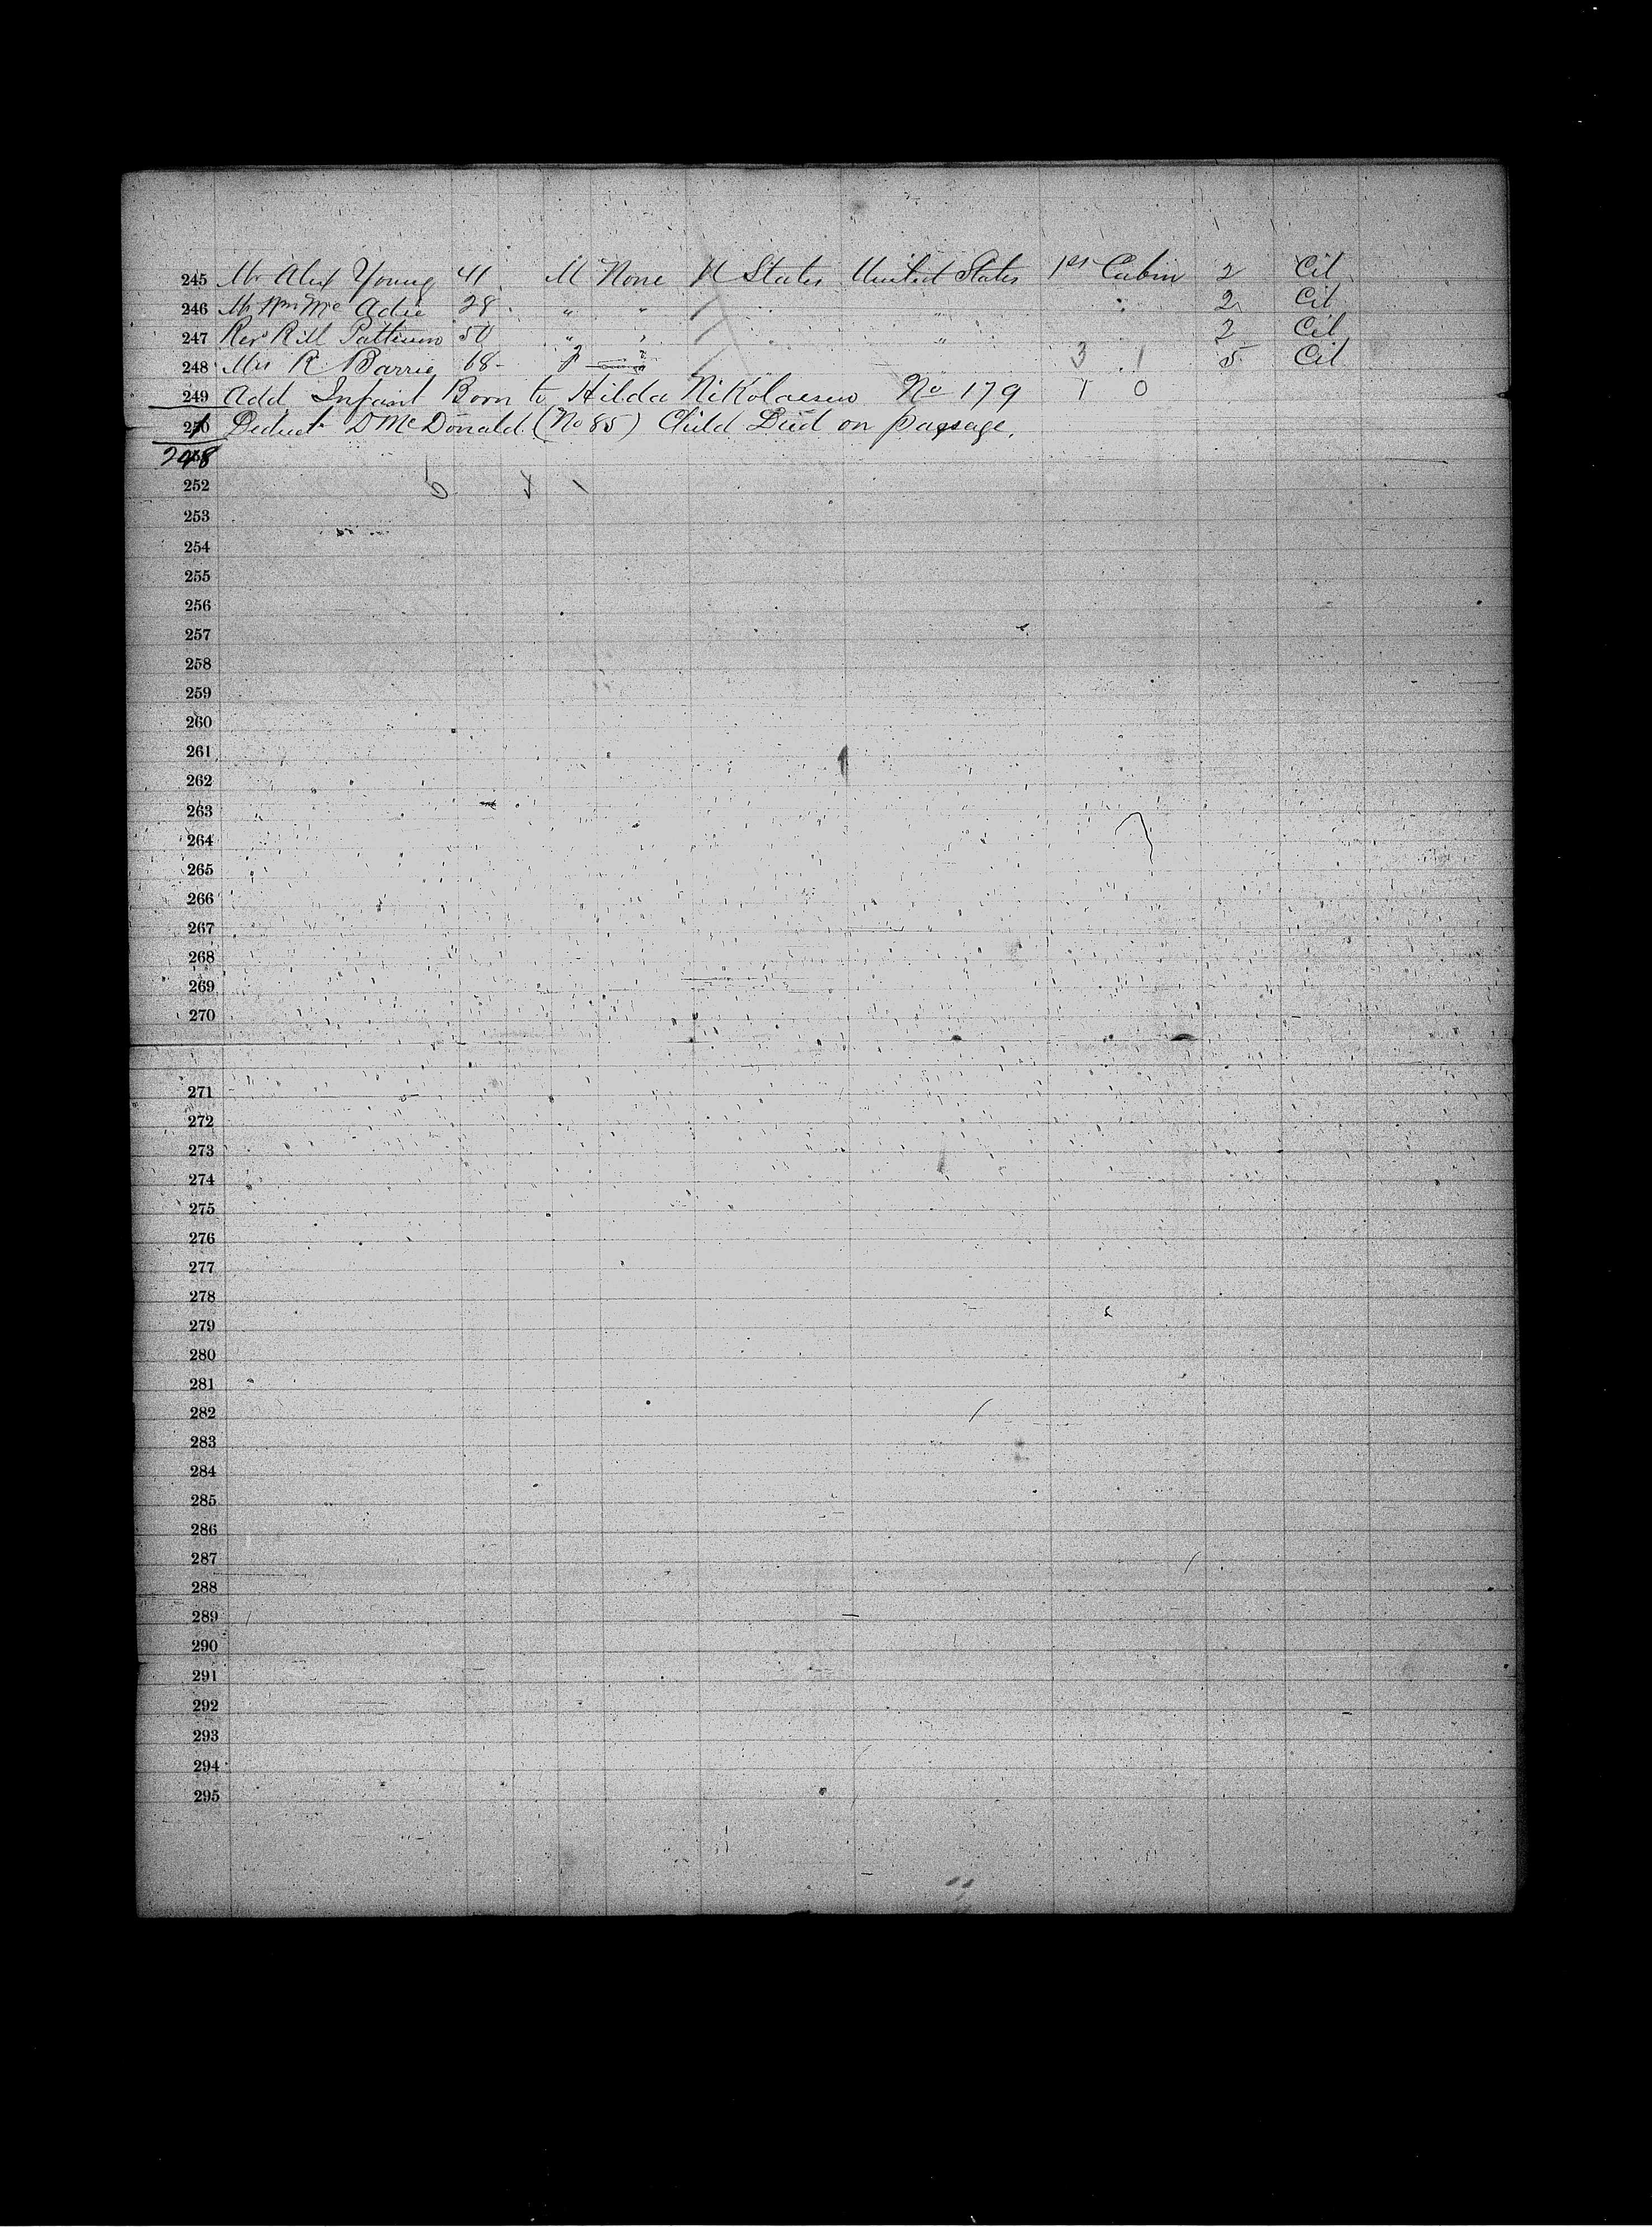 245 Mr Alex Young 41 M None U States United States 1st Cabin 2 Cit
246 Mr Wm Mc Adie 28 " " " " 2 Cit
247 Revd Pattison 50 " " " " 2 Cit
248 Mrs R Barrie 68 f 3 1 5 Cit
249 Add Infant Born to Hilda Nikolaesen No 179 1 0
250 1 Deduct D McDonald (No 85) Child Died on passage.
248
252
253
254
255
256
257
258
259
260
261
262
263
264
265
266
267
268
269
270
271
272
273
274
275
276
277
278
279
280
281
282
283
284
285
286
287
288
289
290
291
292
293
294
295